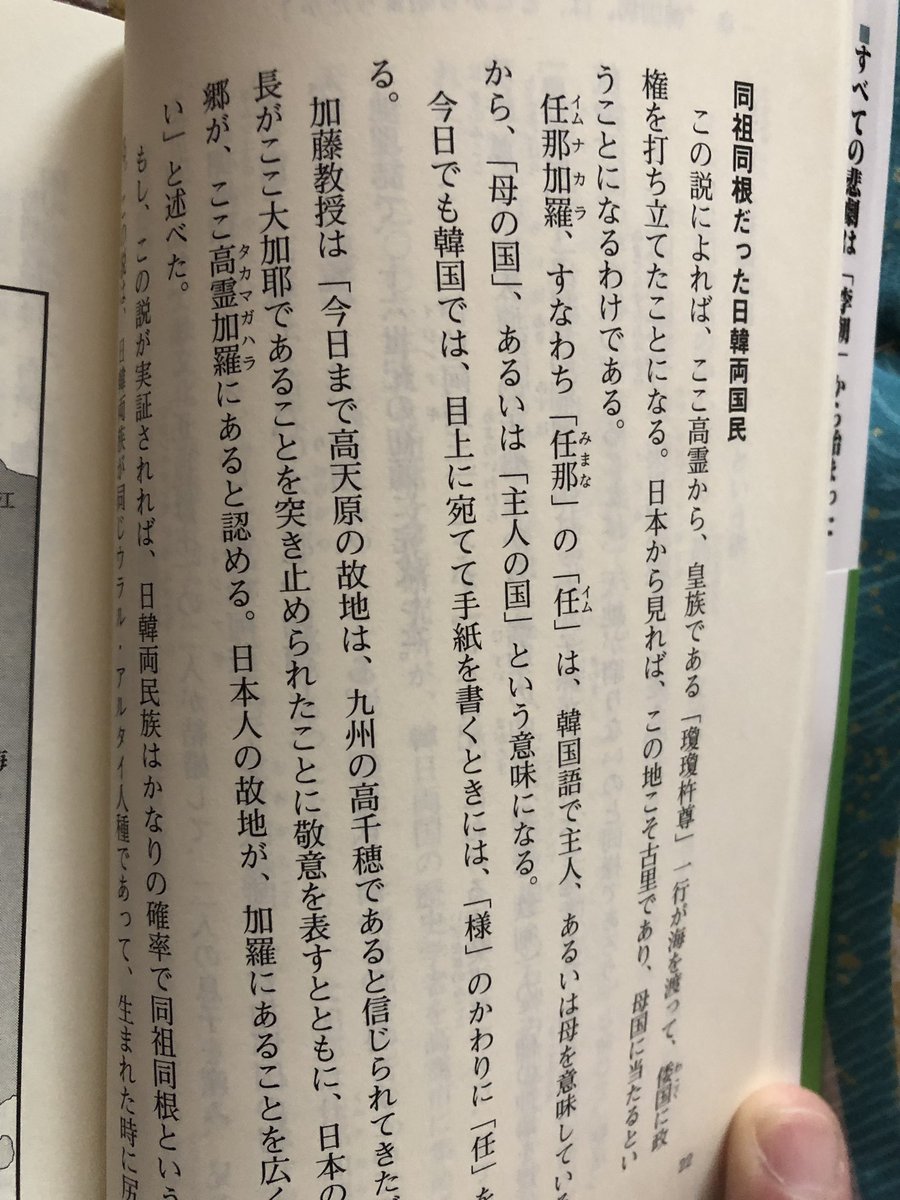 ■すべての悲劇は「李朝」から始まった
同祖同根だった日韓両国民
この説によれば、ここ高霊から、皇族である「瓊瓊杵尊」一行が海を渡って、倭国に政
権を打ち立てたことになる。日本から見れば、この地こそ古里であり、母国に当たるとい
うことになるわけである。
任那加羅、すなわち「任那」の「任」は、韓国語で主人、あるいは母を意味している
から、「母の国」、あるいは「主人の国」という意味になる。
今日でも韓国では、目上に宛てて手紙を書くときには、「様」のかわりに「任」を
る。
加藤教授は「今日まで高天原の故地は、九州の高千穂であると信じられてきたが
長がここ大加耶であることを突き止められたことに敬意を表すとともに、日本の
郷が、ここ高霊加羅にあると認める。日本人の故地が、加羅にあることを広く
い」と述べた。
もし、この説が実証されれば、日韓両民族はかなりの確率で同祖同根という
日韓両族が同じウラル・アルタイ人種であって、生まれた時に尻
22
江
海